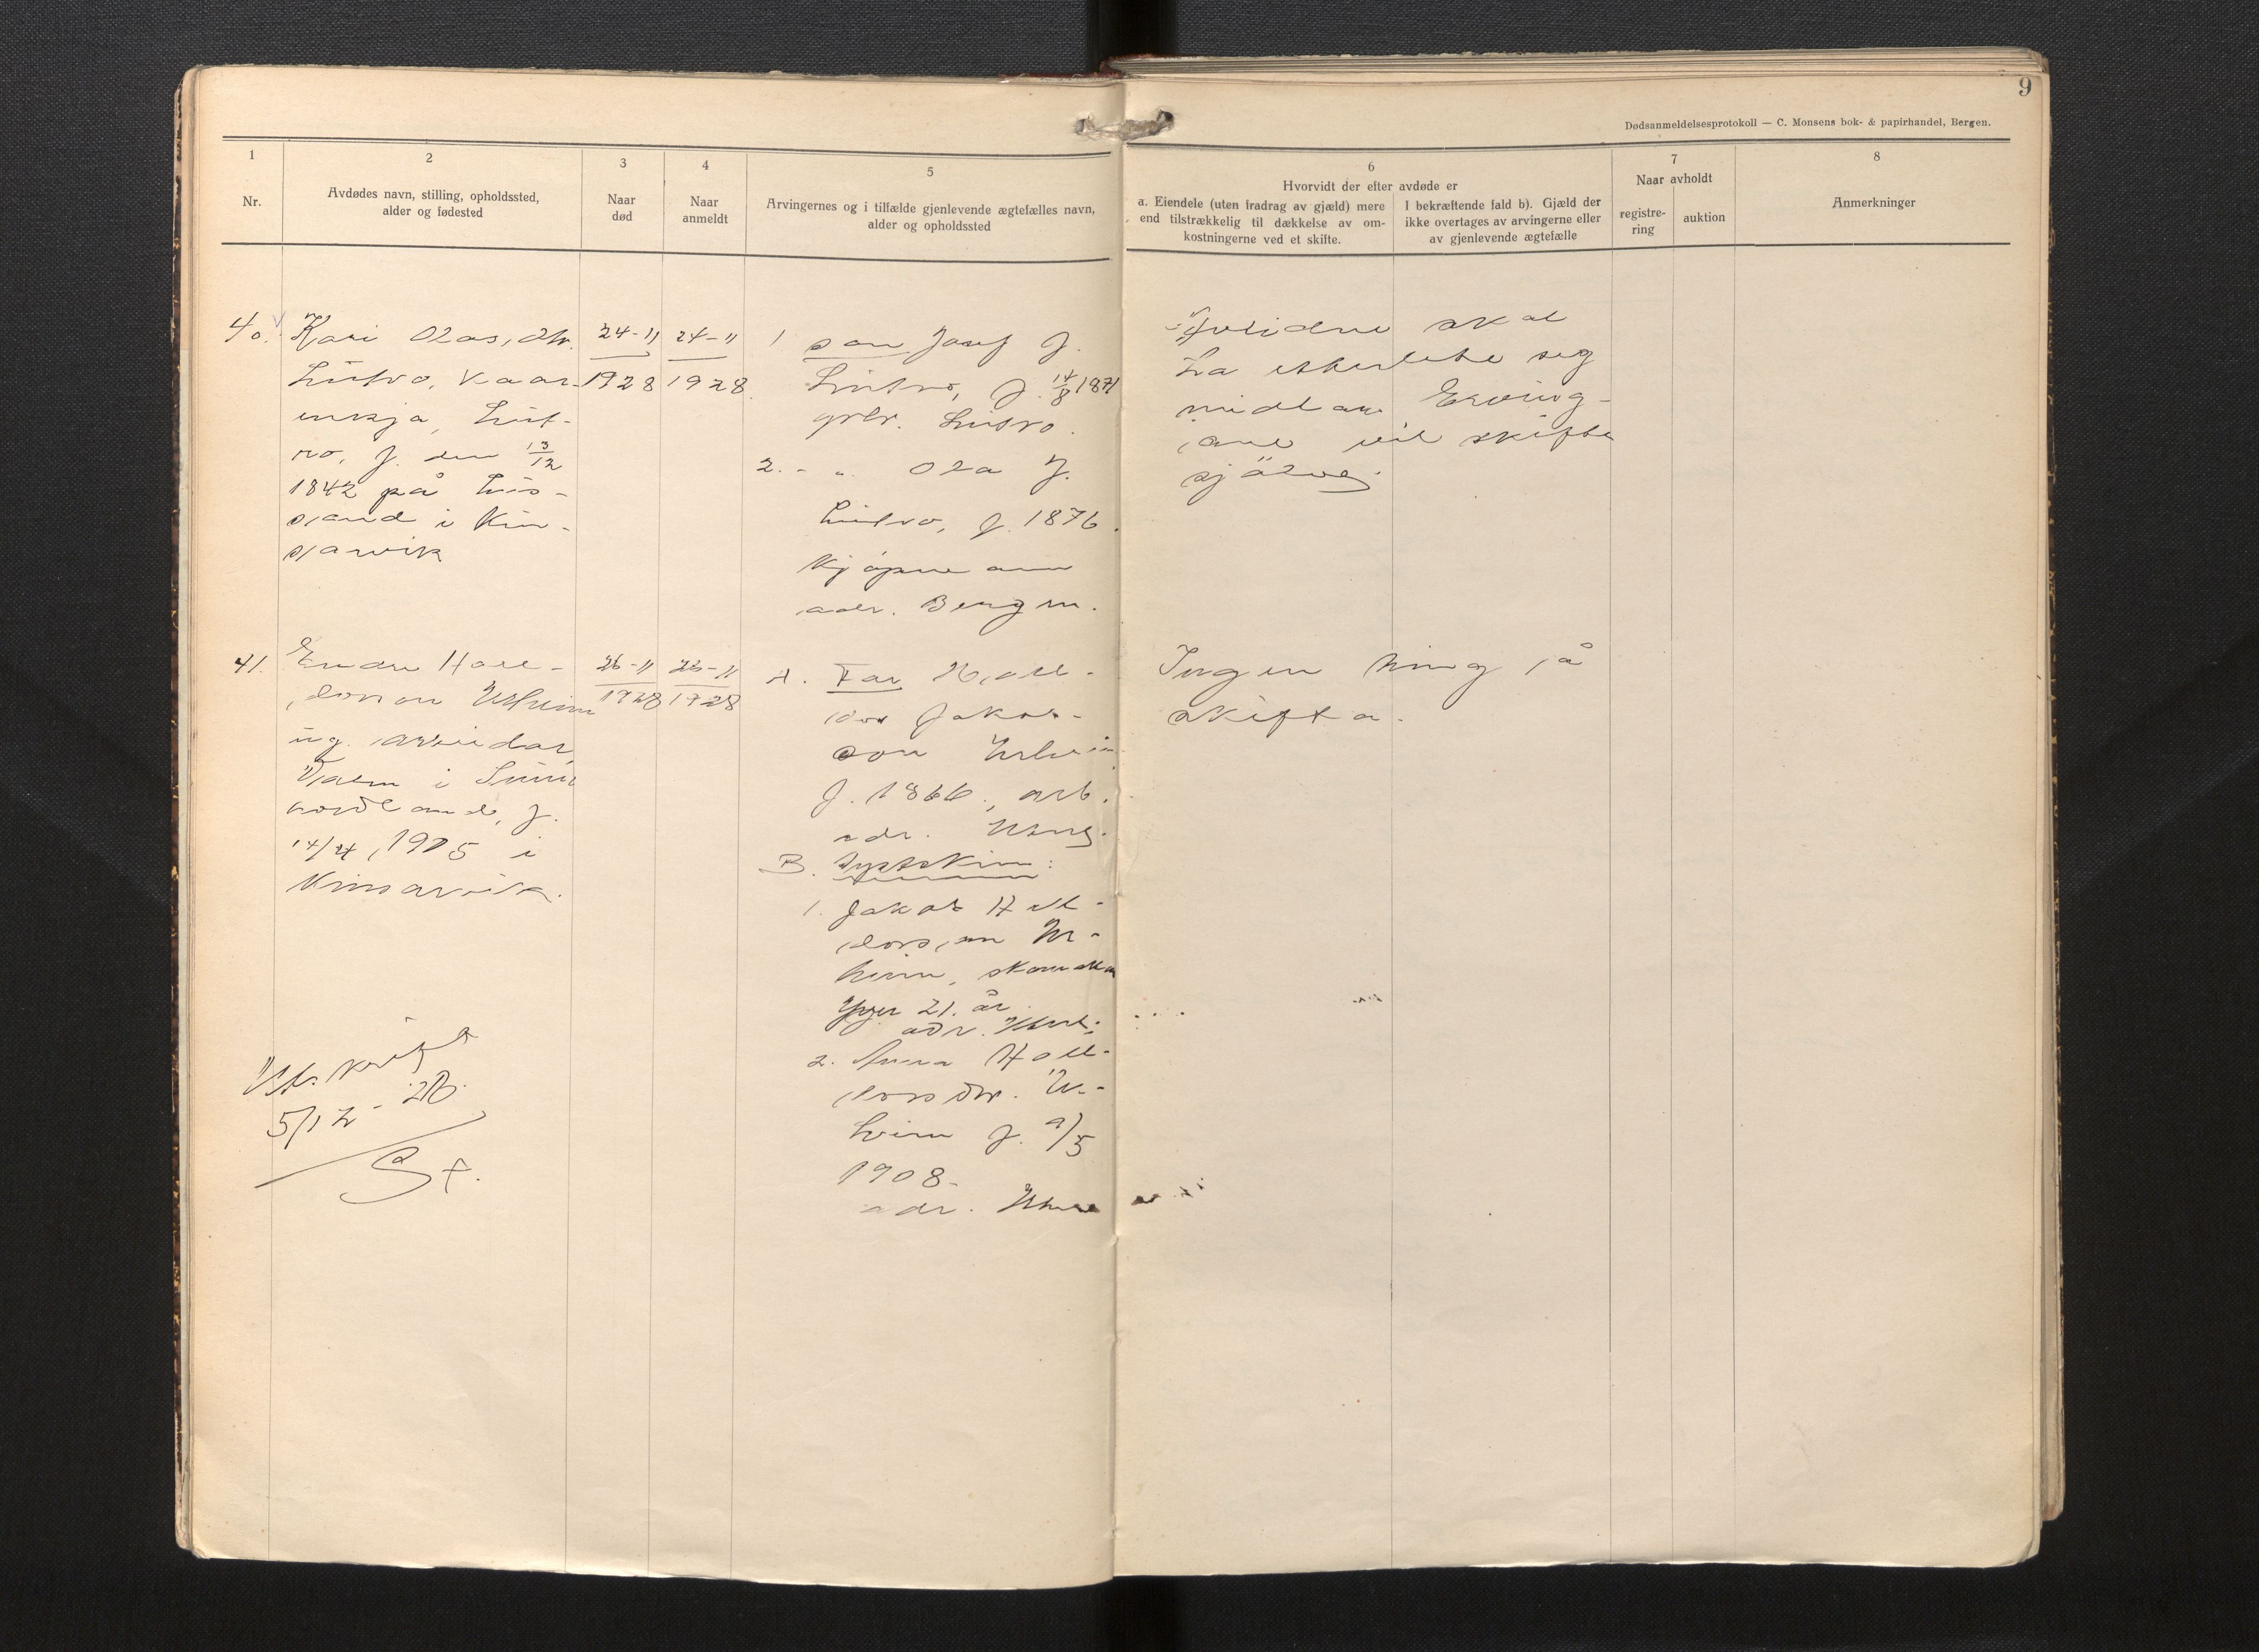 9
Dødsanmeldelsesprotokoll — C. Monsens bok- & papirhandel, Bergen.
1
Nr.
2
Avdødes navn, stilling, opholdssted,
alder og fødested
3
Naar
død
4
Naar
anmeldt
5
Arvingernes og i tilfælde gjenlevende ægtefælles navn,
alder og opholdssted
6
Hvorvidt der efter avdøde er
a. Eiendele (uten fradrag av gjæld) mere
end tilstrækkelig til dækkelse av om-
kostningerne ved et skifte.
I bekræftende fald b). Gjæld der
ikke overtages av arvingerne eller
av gjenlevende ægtefælle
7
Naar avholdt
registre-
ring
auktion
8
Anmerkninger
40.
Kari Olasdtr.
Lutro, kaar-
enkja, Lut-
ro, f. den 13/12
1842 på Lus-
sand i Kin-
sarvik
24-11
1928
24-11
1928
1 son Josef J.
Lutro, f. 14/8 1871
grbr. Lutro.
2. - " Ola J.
Lutro, f. 1876.
Kjöpmann
adr. Bergen.
skal
ha etterlete seg
midlar. Erving-
ane vil skifte
sjölve.
41.
Endre Hall-
dorson Urheim
ug. arbeidar,
i Sunn
hordland, f.
14/4 1905 i
Kinsarvik.
26-11
1928
1928
A. Far Hall-
dor Jakob-
son Urheim
f. 1866, arb.
adr.
B. Syskin:
1. Jakob Hall-
dorson Ur-
heim, skomakar
Yver 21. år
adr.
2. Anna Hall-
dorsdtr. Ur-
heim f. 9/5
1908-
adr.
Ingen ting å
skifta.
5/12 - 28.
St.